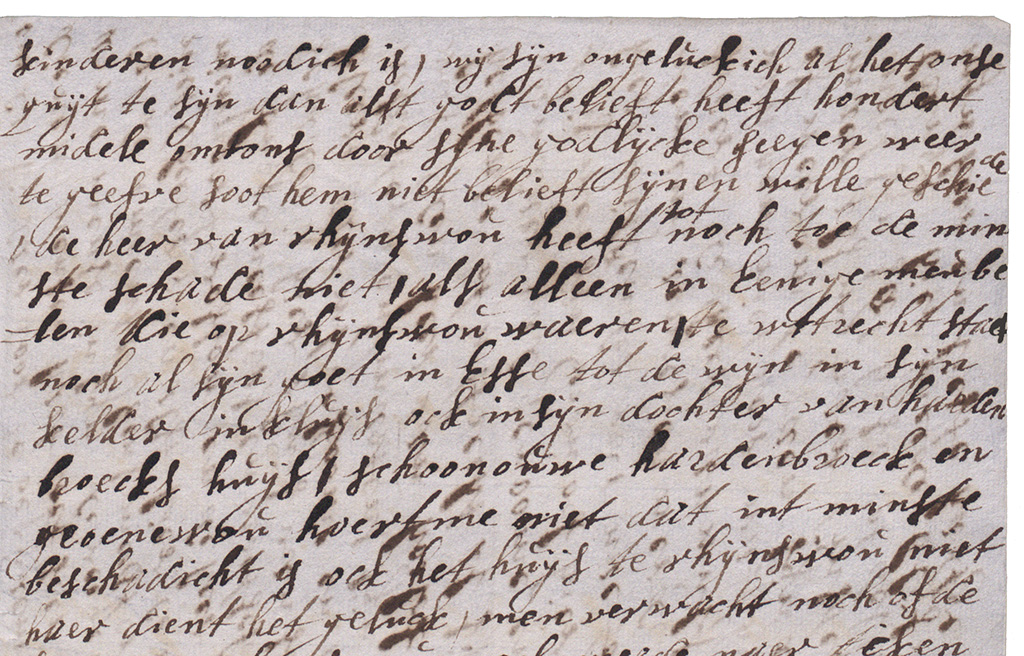 kinderen noodich is, wij sijn ongeluckich al het onse
quijt te sijn dan alst godt belieft heeft hondert
midele om ons door sijne godlijcke seegen weer
te geefve soot hem niet belieft sijnen wille geschiede
de heer van rhijnswou heeft tot noch toe de min
ste schade niet, als alleen in Eenige meube
len die op rhijnswou waeren, te uttrecht staet
noch al sijn goet in Esse tot de wijn in sijn
kelder in kluijs ock in sijn dochter van harden
broecks huijs, schoonouwe hardenbroeck en
groenewou hoert me niet dat int minste
beschadicht is ock het huijs te rhijnswou niet
haer dient het geluck, men verwacht noch of de